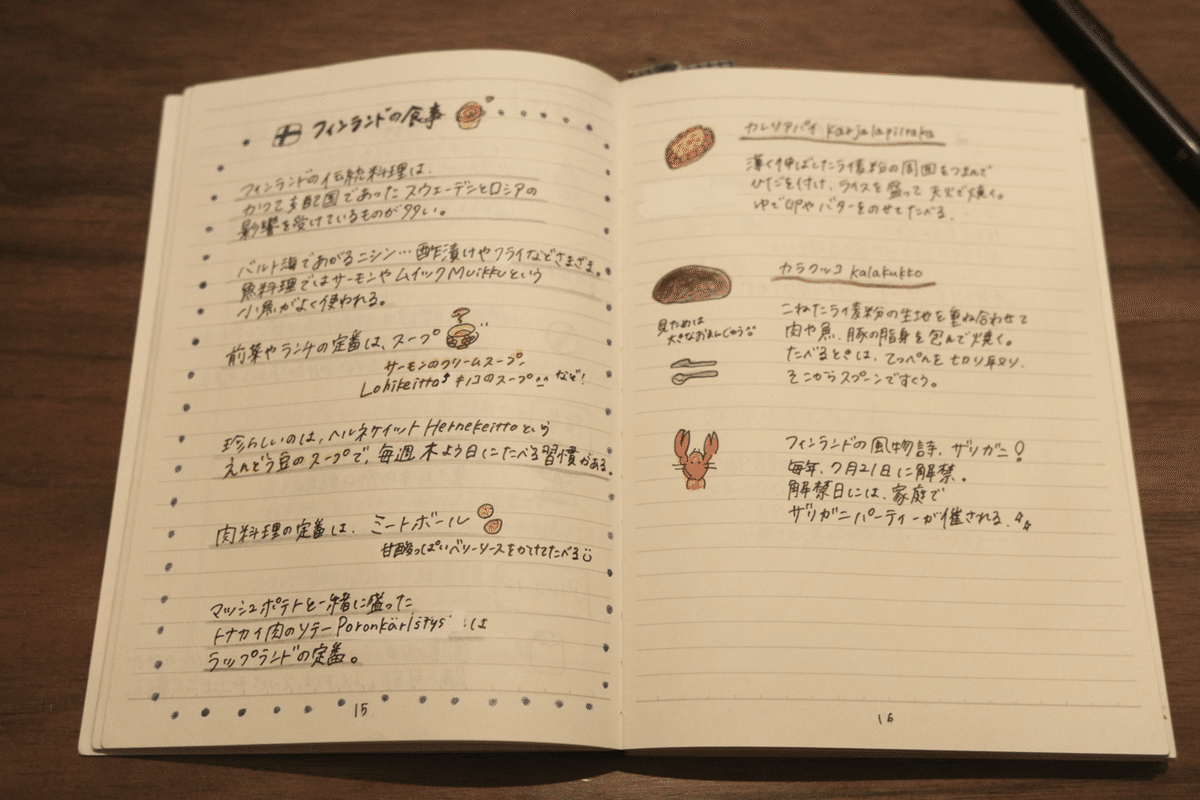 フィンランドの食事
フィンランドの伝統料理は、
かつて支配国であったスウェーデンとロシアの
影響を受けているものが多い。
バルト海であがるニシン…酢漬けやフライなどさまざま。
魚料理ではサーモンやムイックMuikkuという
小魚がよく使われる。
前菜やランチの定番は、スープ
サーモンのクリームスープ
Lohikeitto キノコのスープ など!
珍らしいのは、ヘルネケイット Hernekeittoという
えんどう豆のスープで、毎週木よう日にたべる習慣がある。
肉料理の定番は、ミートボール
甘酸っぱいベリーソースをかけてたべる
マッシュポテトと一緒に盛った
トナカイ肉のソテーPoronkäristys は
ラップランドの定番。
15
カレリアパイ Karjalapiiraka
薄く伸ばしたライ麦粉の周囲をつまんで
ひだを付け、ライスを盛って天火で焼く。
ゆで卵やバターをのせてたべる.
カラクッコ kalakukko
見ためは
大きなおまんじゅう
こねたライ麦粉の生地を重ね合わせて
肉や魚、豚の脂身を包んで焼く。
たべるときは、てっぺんを切り取り、
そこからスプーンですくう。
フィンランドの風物詩、ザリガニ!
毎年、7月21日に解禁.
解禁日には、家庭で
ザリガニパーティーが催される.
16